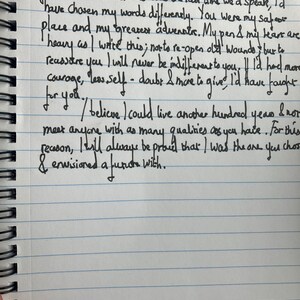 have chosen my words differently. You were my safest
place and my greatest adventure. My pen & my heart are
heavy as I write this; not to re-open old wounds, but to
reassure you I will never be indifferent to you. If I'd had more
courage, less self-doubt & more to give, I'd have fought
for you.
I believe I could live another hundred years & not
meet anyone with as many qualities as you have. For this
reason, I will always be proud that I was the one you chose
& envisioned a future with.